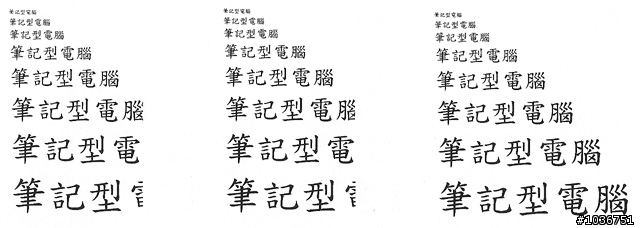 筆記型電腦
筆記型電腦
筆記型電腦
筆記型電腦
筆記型電腦
筆記型電腦
筆記型電
筆記型
筆記型電腦
筆記型電腦
筆記型電腦
筆記型電腦
筆記型電腦
筆記型電腦
筆記型電
筆記型
筆記型電腦
筆記型電腦
筆記型電腦
筆記型電腦
筆記型電腦
筆記型電腦
筆記型電腦
筆記型電腦
#1036751